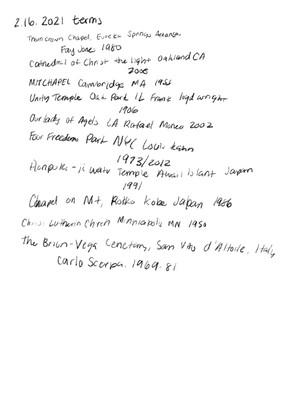 2.16.2021 terms
Thorncrown Chapel, Eureka Springs Arkansas
Fay Jones 1980
Cathedral of Christ the Light Oakland CA
2008
MIT CHAPEL Cambridge MA 1955
Unity Temple Oak Park IL Frank lloyd wright
1906
Our lady of Angels LA Rafael Moneo 2002
Four Freedoms Park NYC Louis Kahn
1973/2012
Honpuku-ji Water Temple Awaji Island Japan
1991
Chapel on Mt, Rokko Kobe Japan 1986
Christ Lutheran Church Minneapolis MN 1950
The Brion-Vega Cemetary, San Vito d'Altoile, Italy
Carlo Scarpa. 1969-81